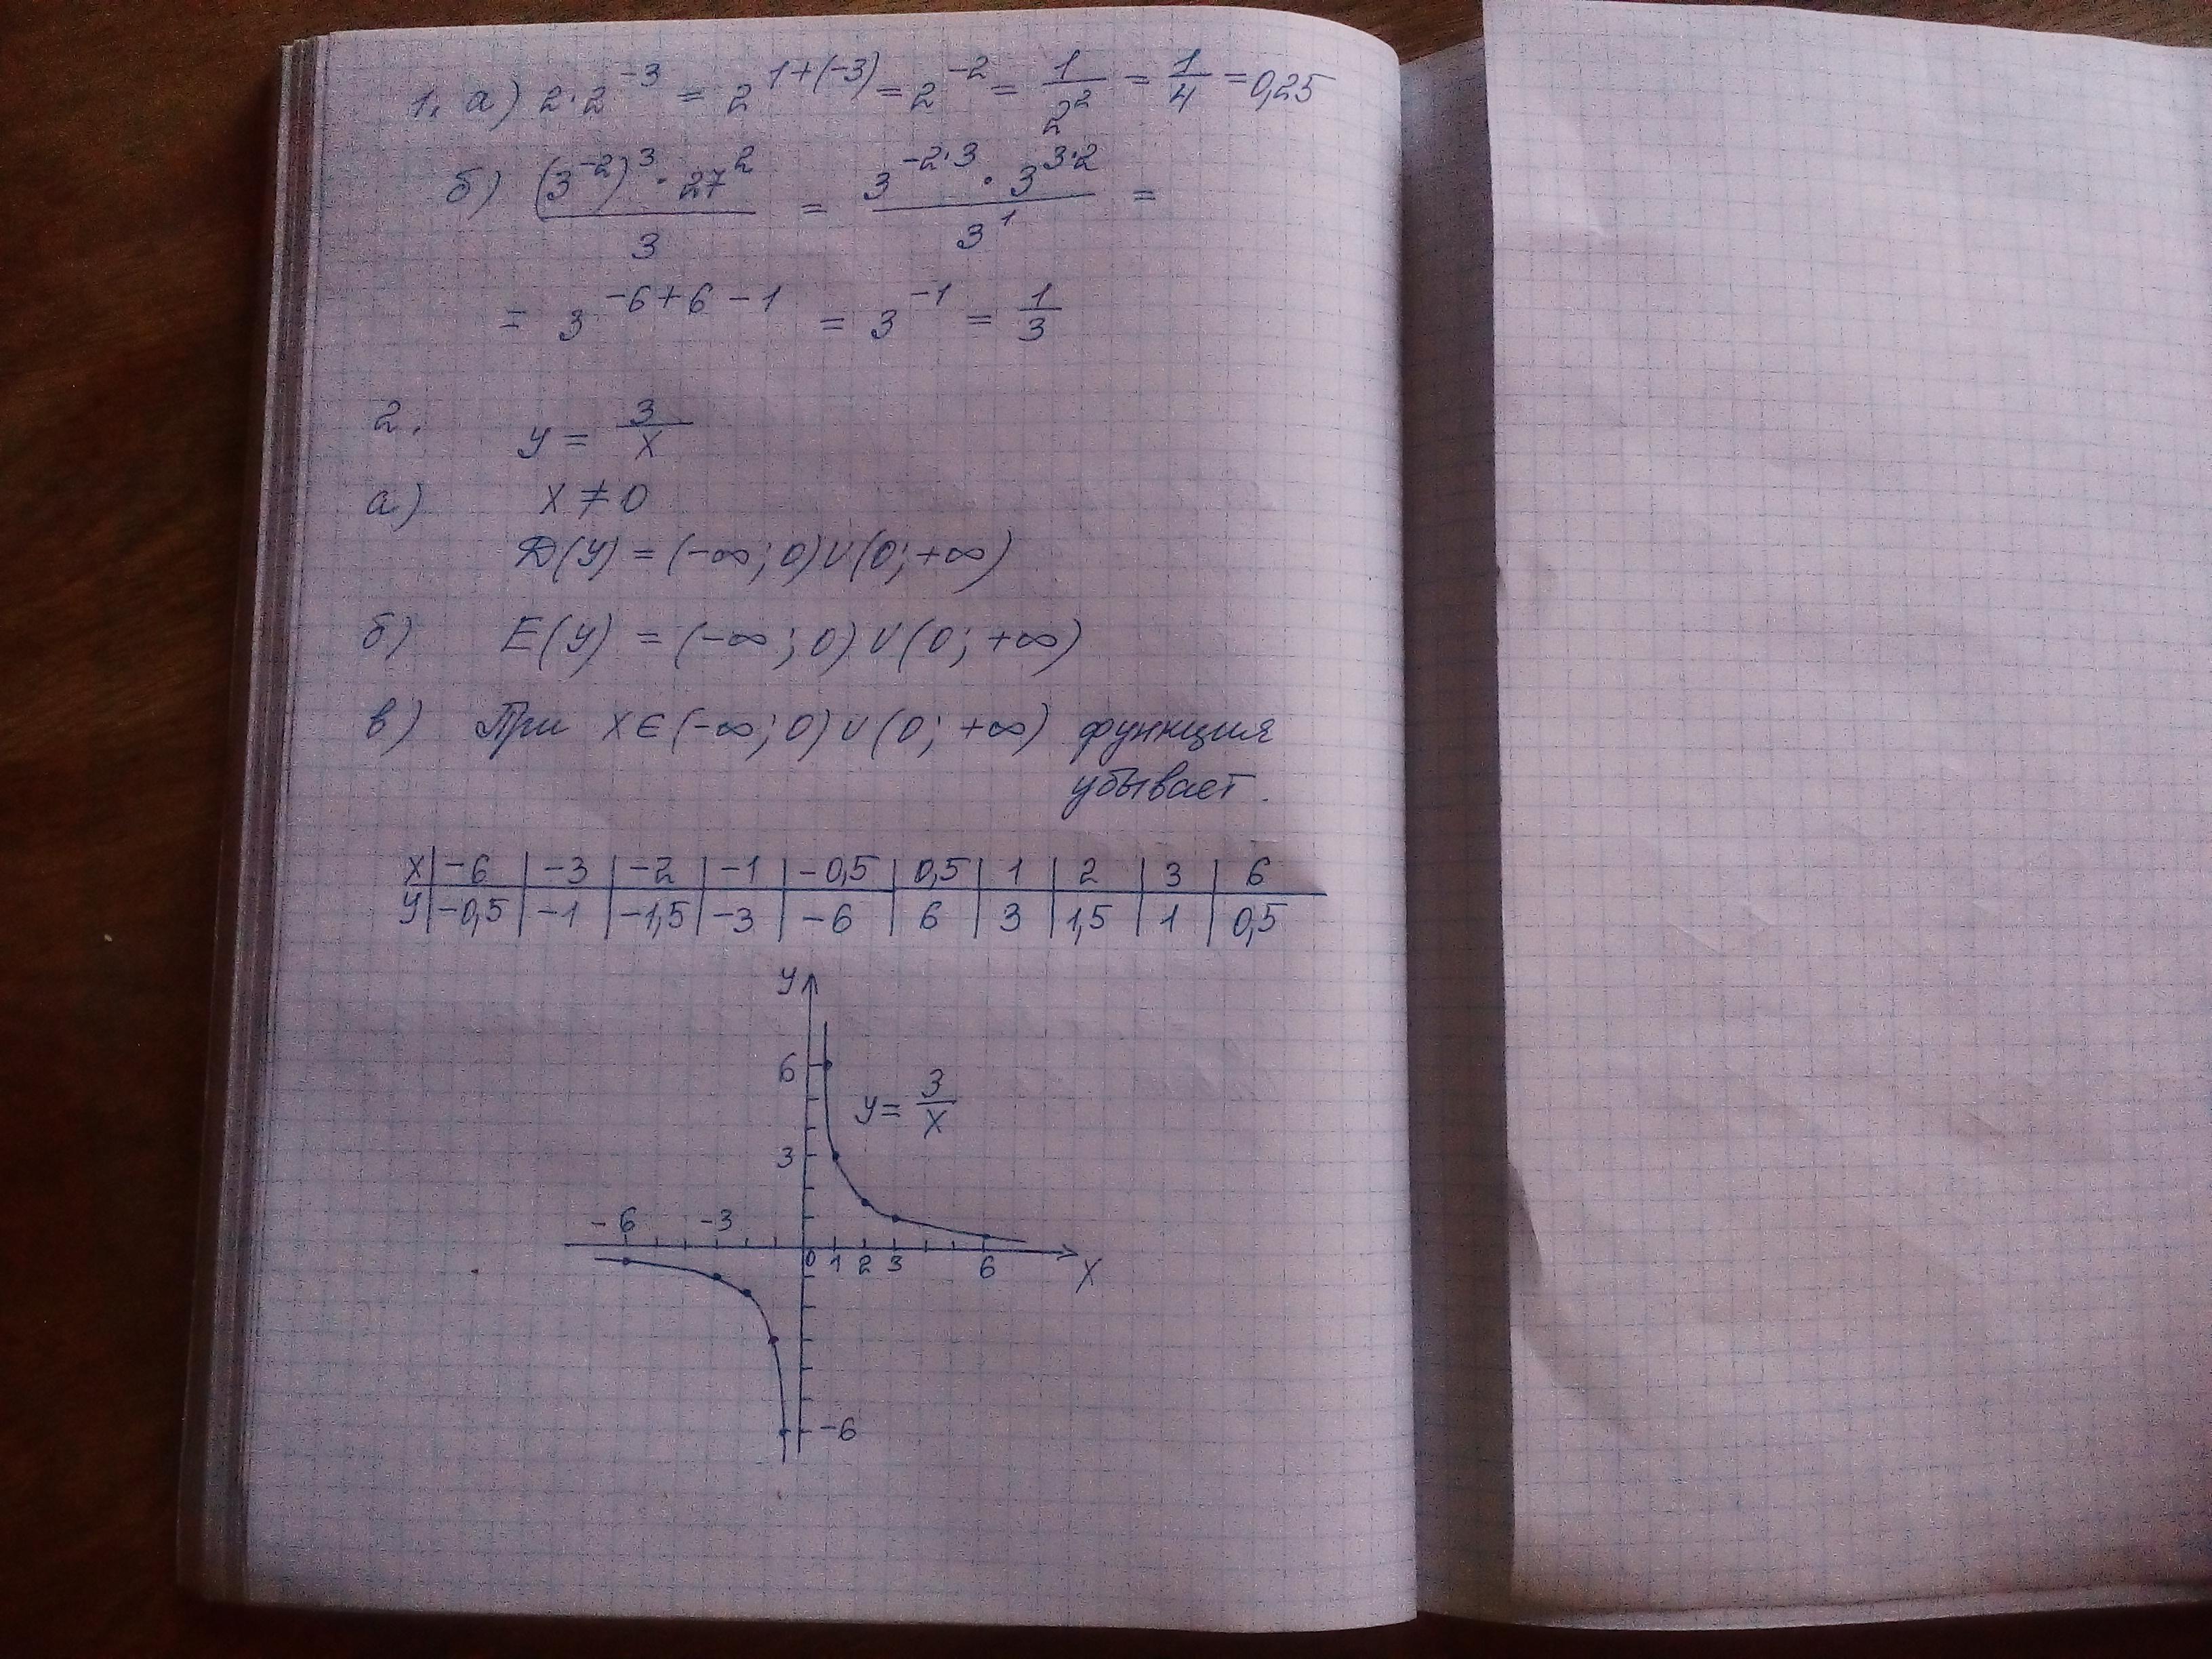 1. а) 2·2^{-3} = 2^{1+(-3)} = 2^{-2} = \frac{1}{2^2} = \frac{1}{4} = 0,25
б) \frac{(3^{-2})^3 · 27^2}{3} = \frac{3^{-2·3} · 3^{3·2}}{3^1} =
= 3^{-6+6-1} = 3^{-1} = \frac{1}{3}
2. y = \frac{3}{x}
а) x ≠ 0
D(y) = (-∞; 0)∪(0; +∞)
б) E(y) = (-∞; 0)∪(0; +∞)
в) При x∈(-∞; 0)∪(0; +∞) функция
убывает.
x | -6 | -3 | -2 | -1 | -0,5 | 0,5 | 1 | 2 | 3 | 6
y | -0,5 | -1 | -1,5 | -3 | -6 | 6 | 3 | 1,5 | 1 | 0,5
y
6
y = \frac{3}{x}
3
-6 -3
0 1 2 3 6 x
-6